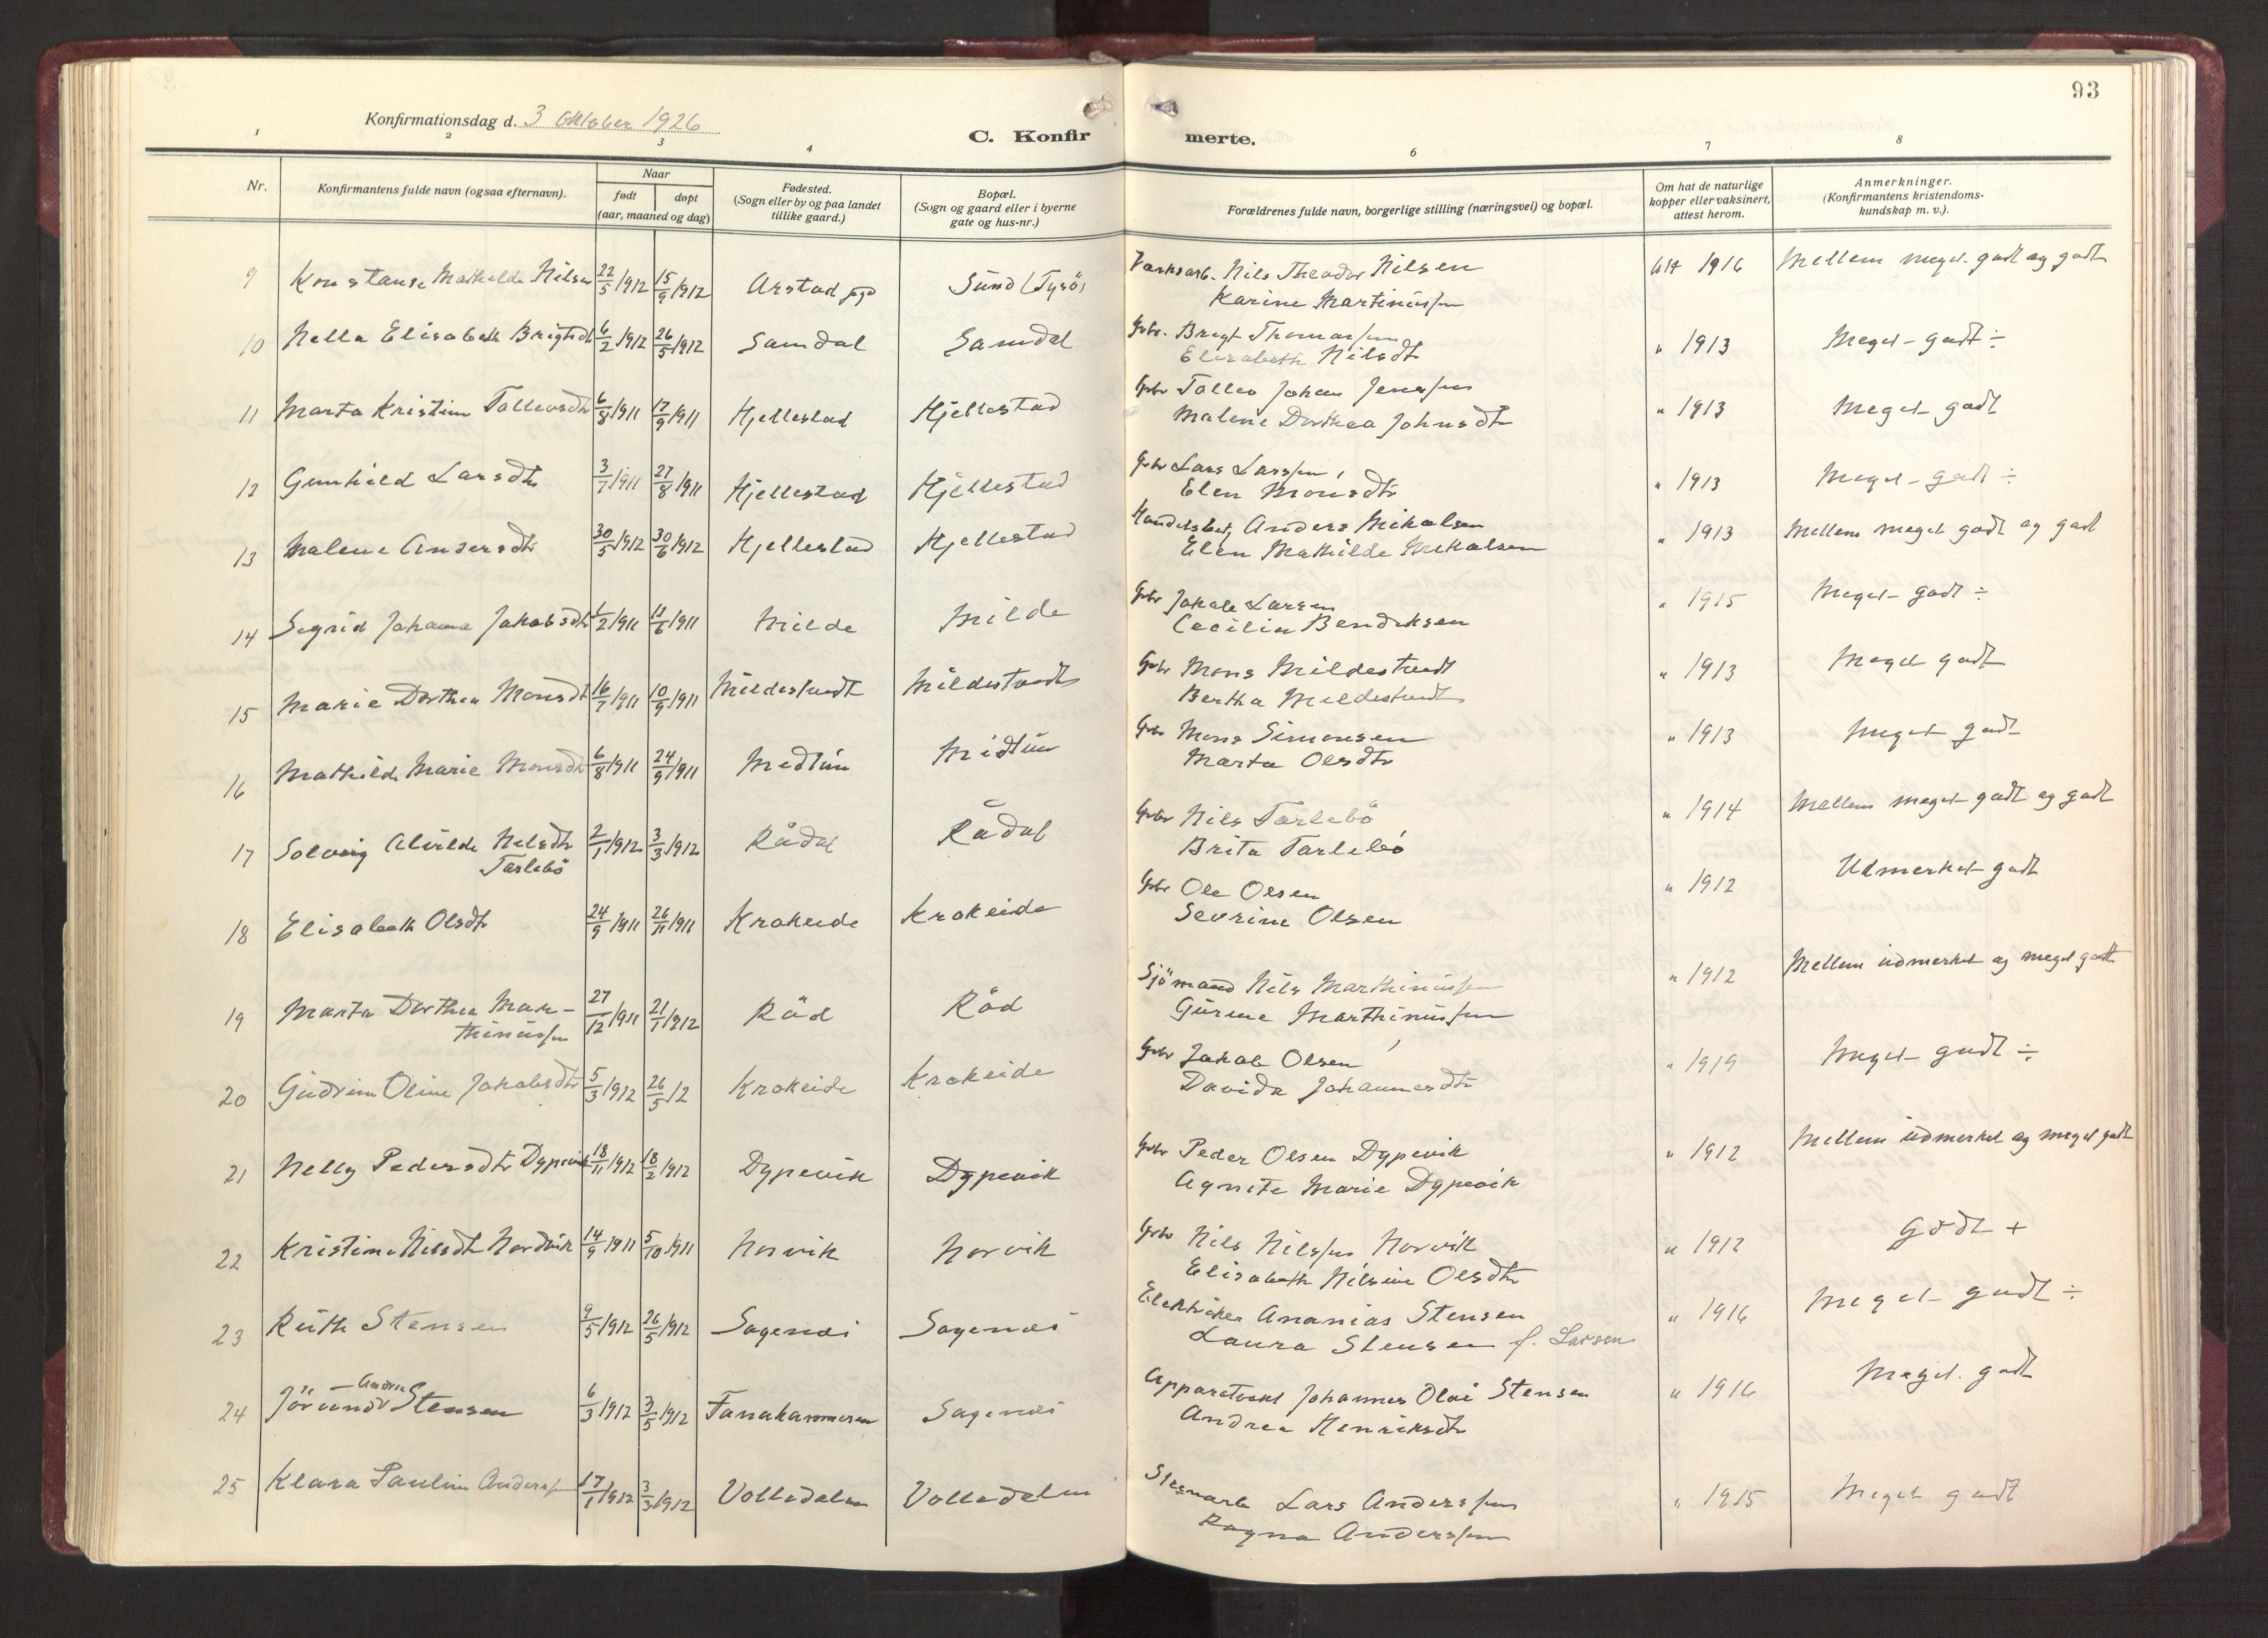 93
Konfirmationsdag d. 3 Oktober 1926
C. Konfirmerte.
1 2 3 4 6 7 8
Nr.
Konfirmantens fulde navn (ogsaa efternavn).
Naar
født døpt
(aar, maaned og dag)
Fødested.
(Sogn eller by og paa landet
tillike gaard.)
Bopæl.
(Sogn og gaard eller i byerne
gate og hus-nr.)
Forældrenes fulde navn, borgerlige stilling (næringsvei) og bopæl.
Om hat de naturlige
kopper eller vaksinert,
attest herom.
Anmerkninger.
(Konfirmantens kristendoms-
kundskap m. v.).
9 Konstanse Mathilde Nilsen 22/5 1912 15/9 1912 Arstad Sund (Tysö) Nils Theodor Nilsen 1916 Mellem meget godt og godt
Karine Martinussen
10 Nella Elisabeth Brigtsdtr 6/2 1912 26/5 1912 Samdal Samdal Gbr. Brigt Thomassen " 1913 Meget godt ÷
Elisabeth Nilsdt
11 Marta Kristine Tollevsdtr 6/8 1911 17/9 1911 Hjellestad Hjellestad Gbr Tollev Johan Jenssen " 1913 Meget godt
Malene Dorthea Johnsdtr
12 Gunhild Larsdtr 3/7 1911 27/8 1911 Hjellestad Hjellestad Gbr Lars Larssen " 1913 Meget godt ÷
Elen Monsdtr
13 Malene Andersdtr 30/5 1912 30/6 1912 Hjellestad Hjellestad Anders Mikalsen " 1913 Mellem meget godt og godt
Elen Mathilde Mikalsen
14 Sigrid Johanna Jakobsdtr 1/2 1911 11/6 1911 Milde Milde Gbr Jakob Larsen " 1915 Meget godt ÷
Cecilia Bendiksen
15 Marie Dorthea Monsdt 16/7 1911 10/9 1911 Mildestvedt Mildestvedt Gbr Mons Mildestvedt " 1913 Meget godt
Bertha Mildestvedt
16 Mathilde Marie Monsdtr 6/8 1911 24/9 1911 Midtun Midtun Gbr Mons Simonsen " 1913 Meget godt
Marta Olsdtr
17 Solveig Alvilde Nilsdtr 2/1 1912 3/3 1912 Rådal Rådal Gbr Nils Tarlebö " 1914 Mellem meget godt og godt
Tarlebö Brita Tarlebö
18 Elisabeth Olsdtr 24/9 1911 26/11 1911 Krokeide Krokeide Gbr Ole Olsen " 1912 Udmerket godt
Sevrine Olsen
19 Marta Dorthea Mar- 27/12 1911 21/1 1912 Råd Råd Sjömand Nils Marthinussen " 1912 Mellem udmerket og meget godt
thinussen Gurine Marthinussen
20 Gudrun Oline Jakobsdtr 5/3 1912 26/5 12 Krokeide Krokeide Gbr Jakob Olsen " 1919 Meget godt ÷
Davida Johannesdtr
21 Nelly Pedersdtr Dypevik 18/11 1912 18/2 1912 Dypevik Dypevik Gbr Peder Olsen Dypevik " 1912 Mellem udmerket og meget godt
Agnete Marie Dypevik
22 Kristine Nilsdt Nordvik 14/9 1911 5/10 1911 Norvik Norvik Gbr Nils Nilssen Norvik " 1912 Godt +
Elisabeth Nilsine Olsdtr
23 Ruth Stensen 9/5 1912 26/5 1912 Sagenes Sagenes Elektriker Ananias Stensen " 1916 Meget godt ÷
Laura Stensen f. Larsen
24 Jörund Andrea Stensen 6/3 1912 3/5 1912 Fanahammeren Sagenes Johannes Olai Stensen " 1916 Meget godt
Andrea Henriksdtr
25 Klara Pauline Anderssen 17/1 1912 3/3 1912 Volledalen Volledalen Lars Anderssen " 1915 Meget godt
Ragna Anderssen